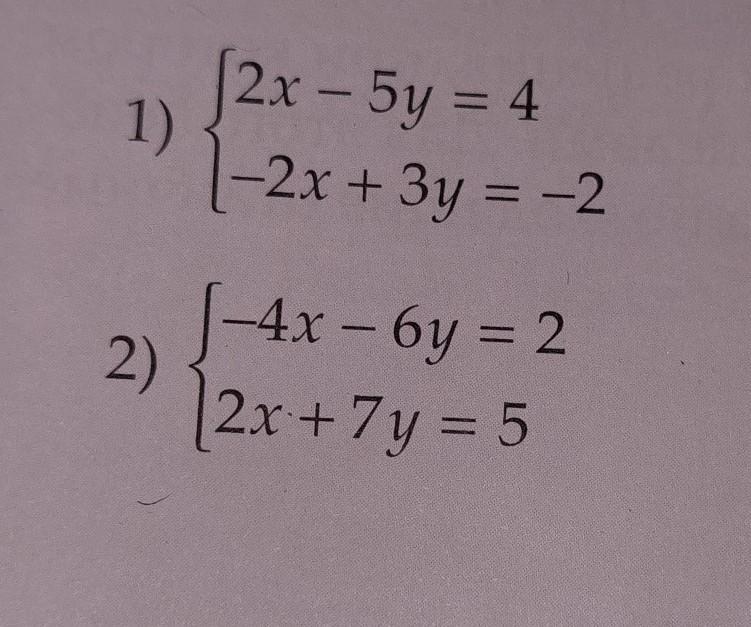 1) 2x – 5y = 4
–2x + 3y = –2
2) –4x – 6y = 2
2x + 7y = 5